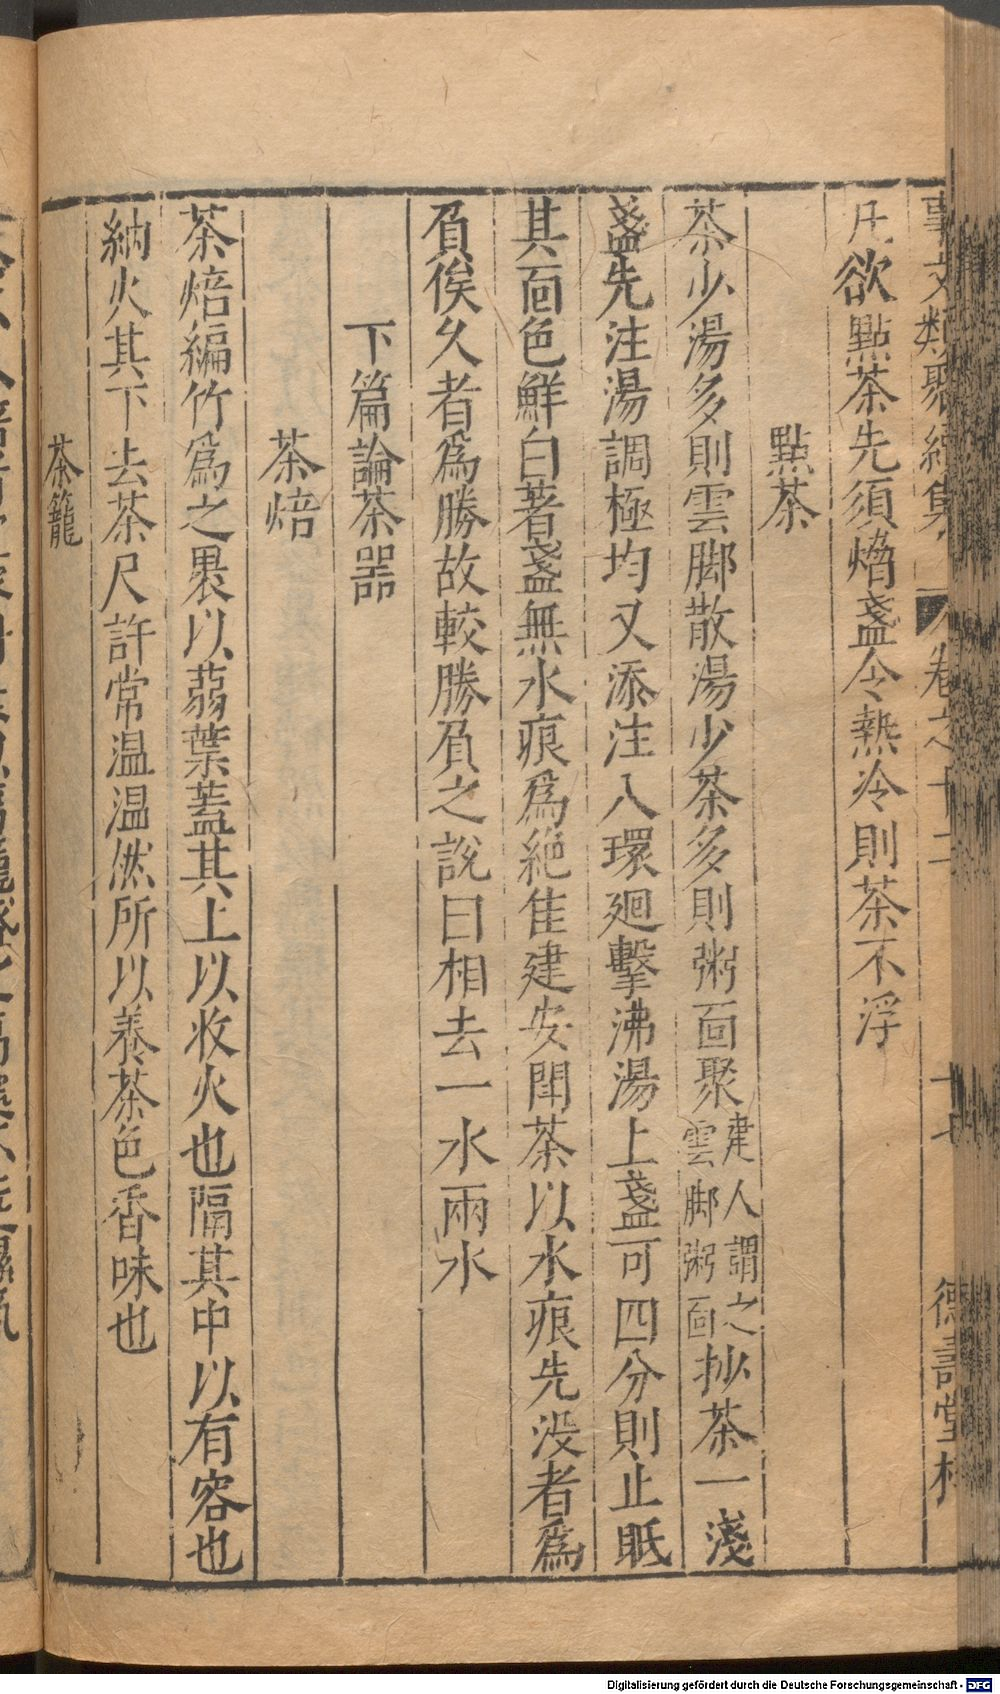 事文類聚續集 卷之十二 十七 德壽堂梓
凡欲點茶先須熁盞令熱冷則茶不浮
點茶
茶少湯多則雲脚散湯少茶多則粥面聚建人謂之雲脚粥面抄茶一淺
盞先注湯調極均又添注入環廻擊沸湯上盞可四分則止眂
其面色鮮白著盞無水痕爲絶隹建安閗茶以水痕先没者爲
負俟久者爲勝故較勝負之說曰相去一水兩水
下篇論茶器
茶焙
茶焙編竹爲之褁以蒻葉蓋其上以收火也隔其中以有容也
納火其下去茶尺許常温温然所以養茶色香味也
茶籠
Digitalisierung gefördert durch die Deutsche Forschungsgemeinschaft - DFG